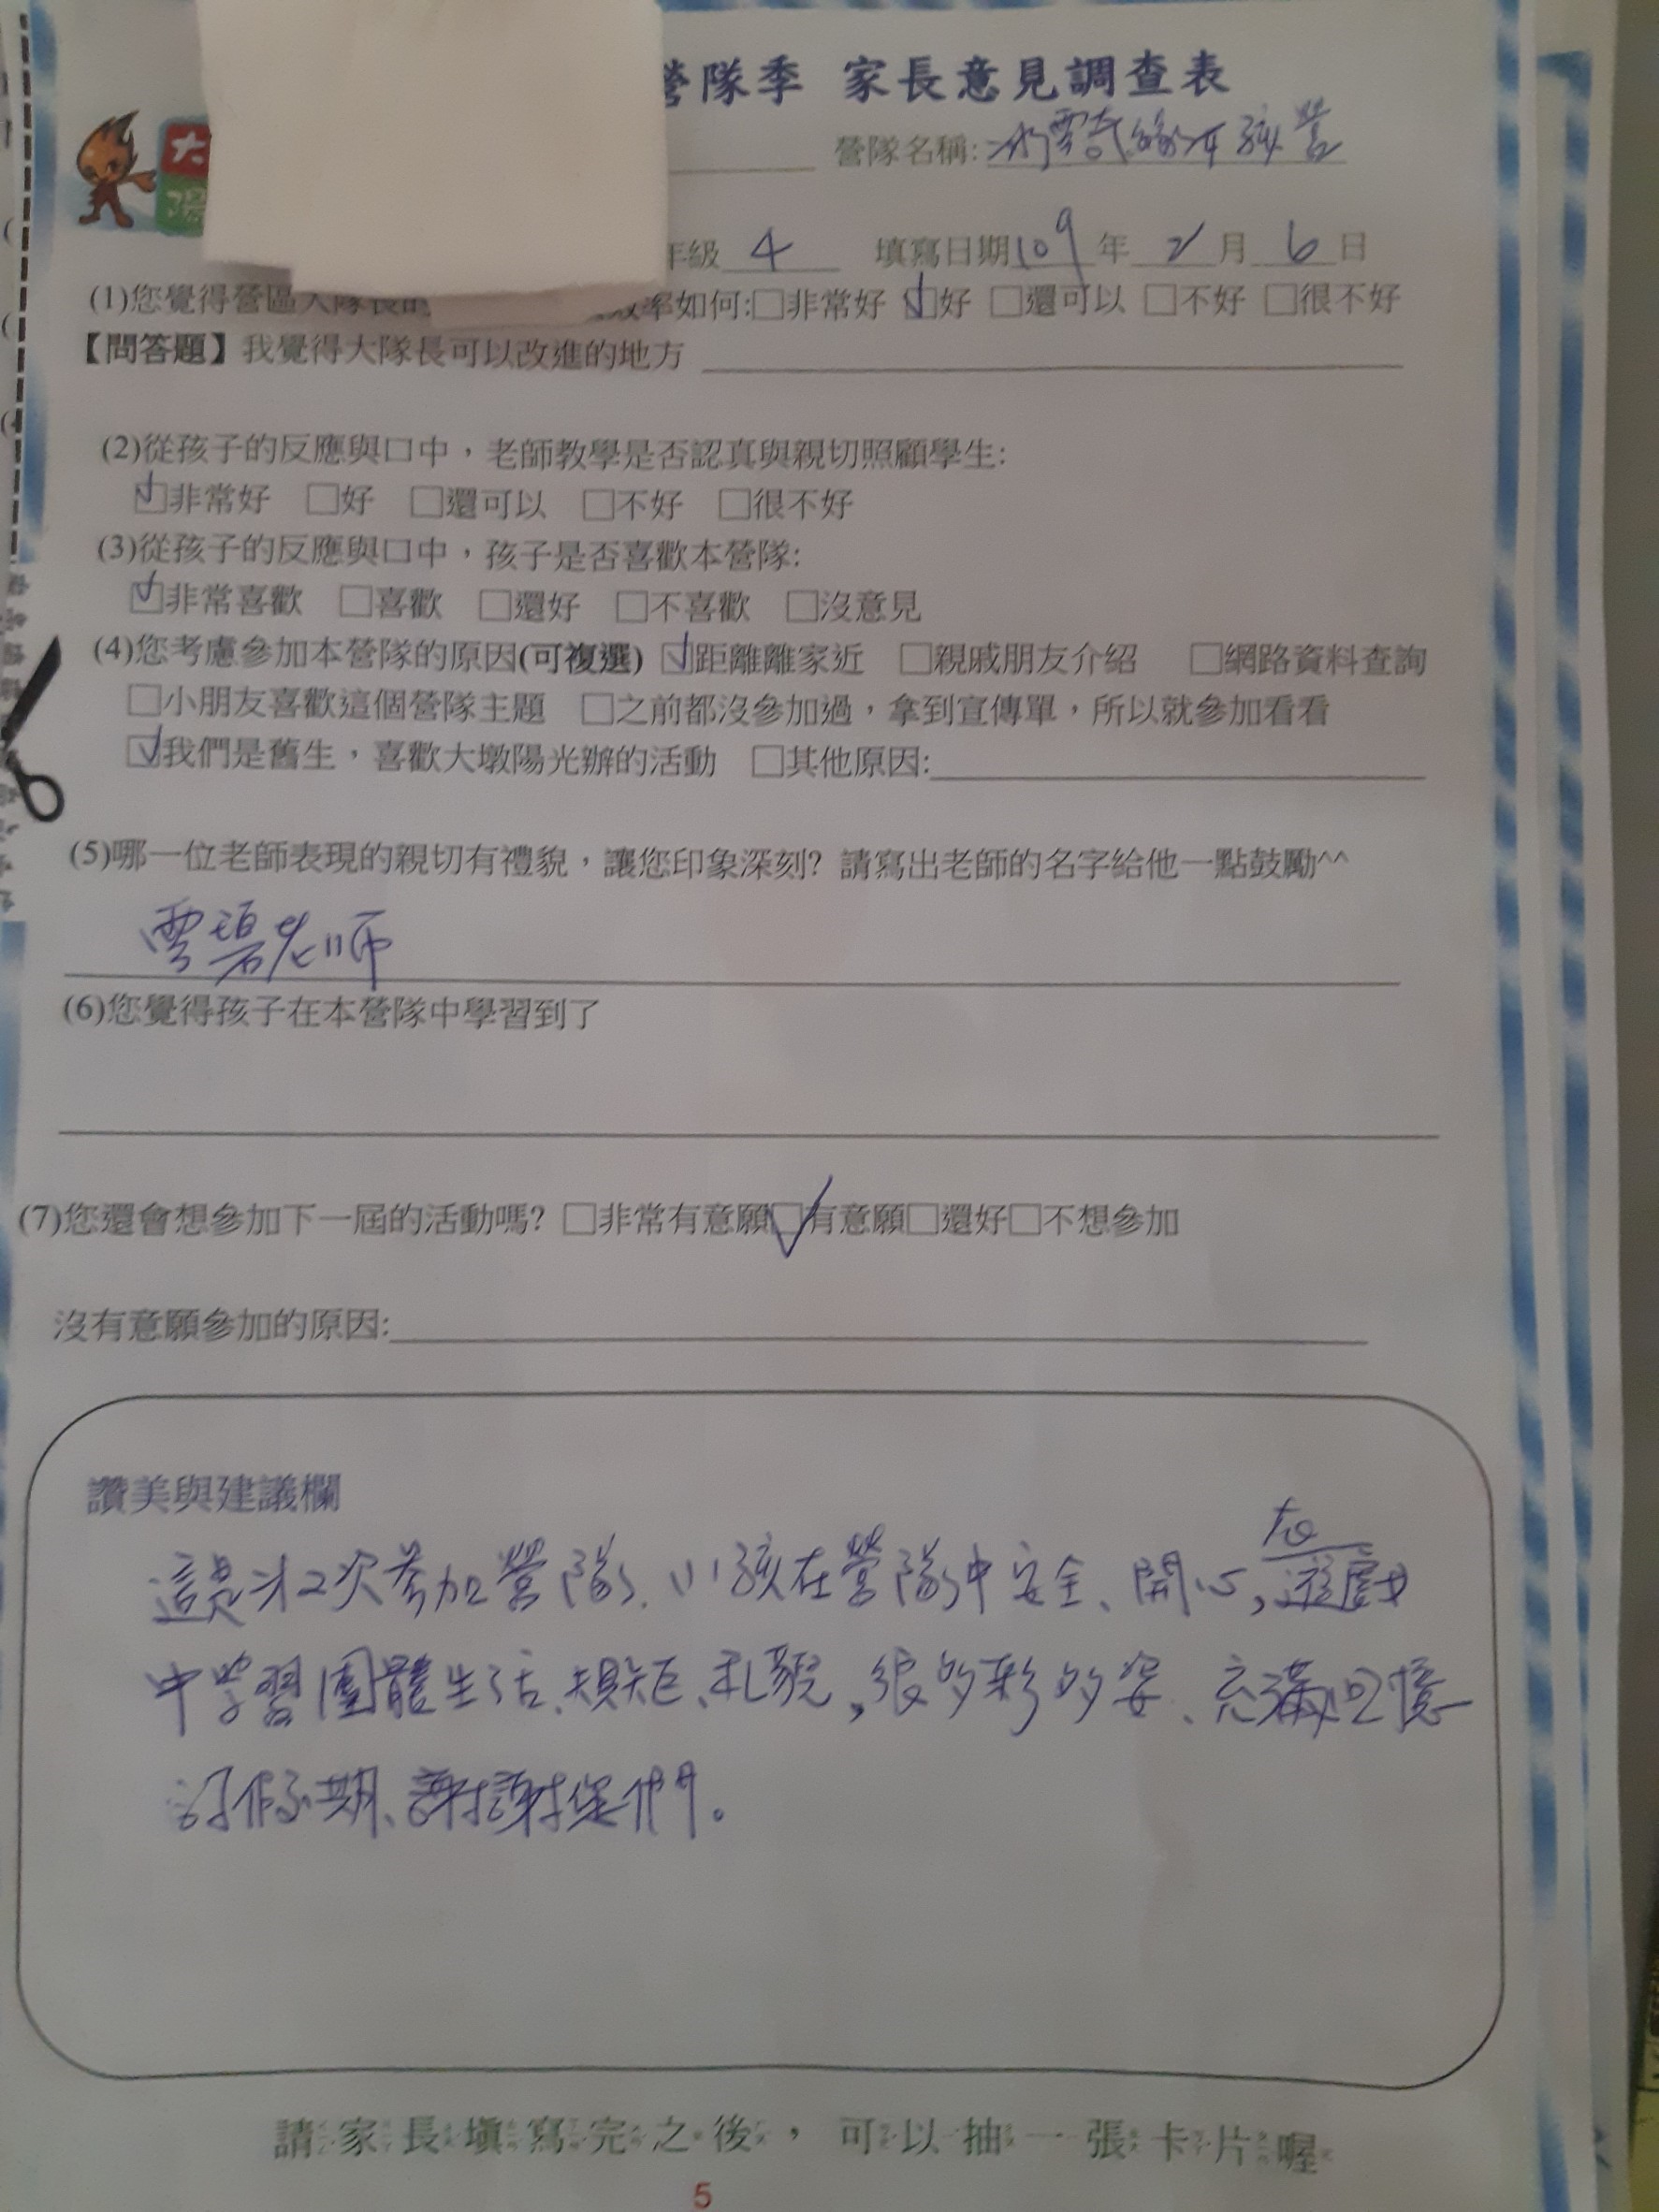 營隊季 家長意見調查表
大
營隊名稱:冰雪奇緣冬令營
年級 4 填寫日期109年2月6日
(1)您覺得營區大隊長的 效率如何:□非常好 ☑好 □還可以 □不好 □很不好
【問答題】我覺得大隊長可以改進的地方
(2)從孩子的反應與口中，老師教學是否認真與親切照顧學生:
☑非常好 □好 □還可以 □不好 □很不好
(3)從孩子的反應與口中，孩子是否喜歡本營隊:
☑非常喜歡 □喜歡 □還好 □不喜歡 □沒意見
(4)您考慮參加本營隊的原因(可複選) ☑距離離家近 □親戚朋友介紹 □網路資料查詢
□小朋友喜歡這個營隊主題 □之前都沒參加過，拿到宣傳單，所以就參加看看
☑我們是舊生，喜歡大墩陽光辦的活動 □其他原因:
(5)哪一位老師表現的親切有禮貌，讓您印象深刻? 請寫出老師的名字給他一點鼓勵^^
雲碧老師
(6)您覺得孩子在本營隊中學習到了
(7)您還會想參加下一屆的活動嗎? □非常有意願☑有意願□還好□不想參加
沒有意願參加的原因:
讚美與建議欄
這是第2次參加營隊、小孩在營隊中安全、開心,在遊戲
中學習團體生活、規矩、礼貌,很多彩多姿、充滿回憶
的假期、謝謝您們。
請家長填寫完之後，可以抽一張卡片喔
5